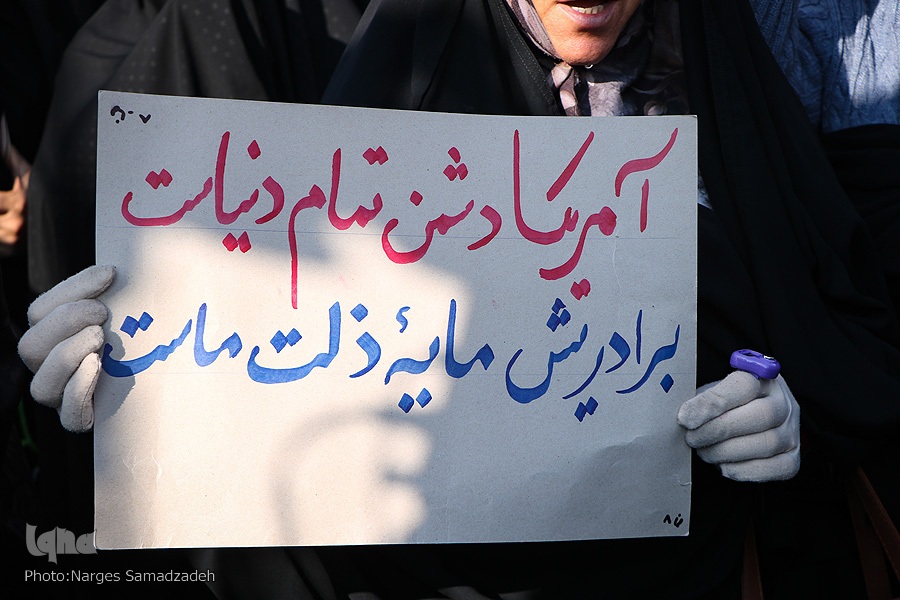 آمریکا دشمن تمام دنیاست
برادریش مایهٔ ذلت ماست
iqna
Photo:Narges Samadzadeh